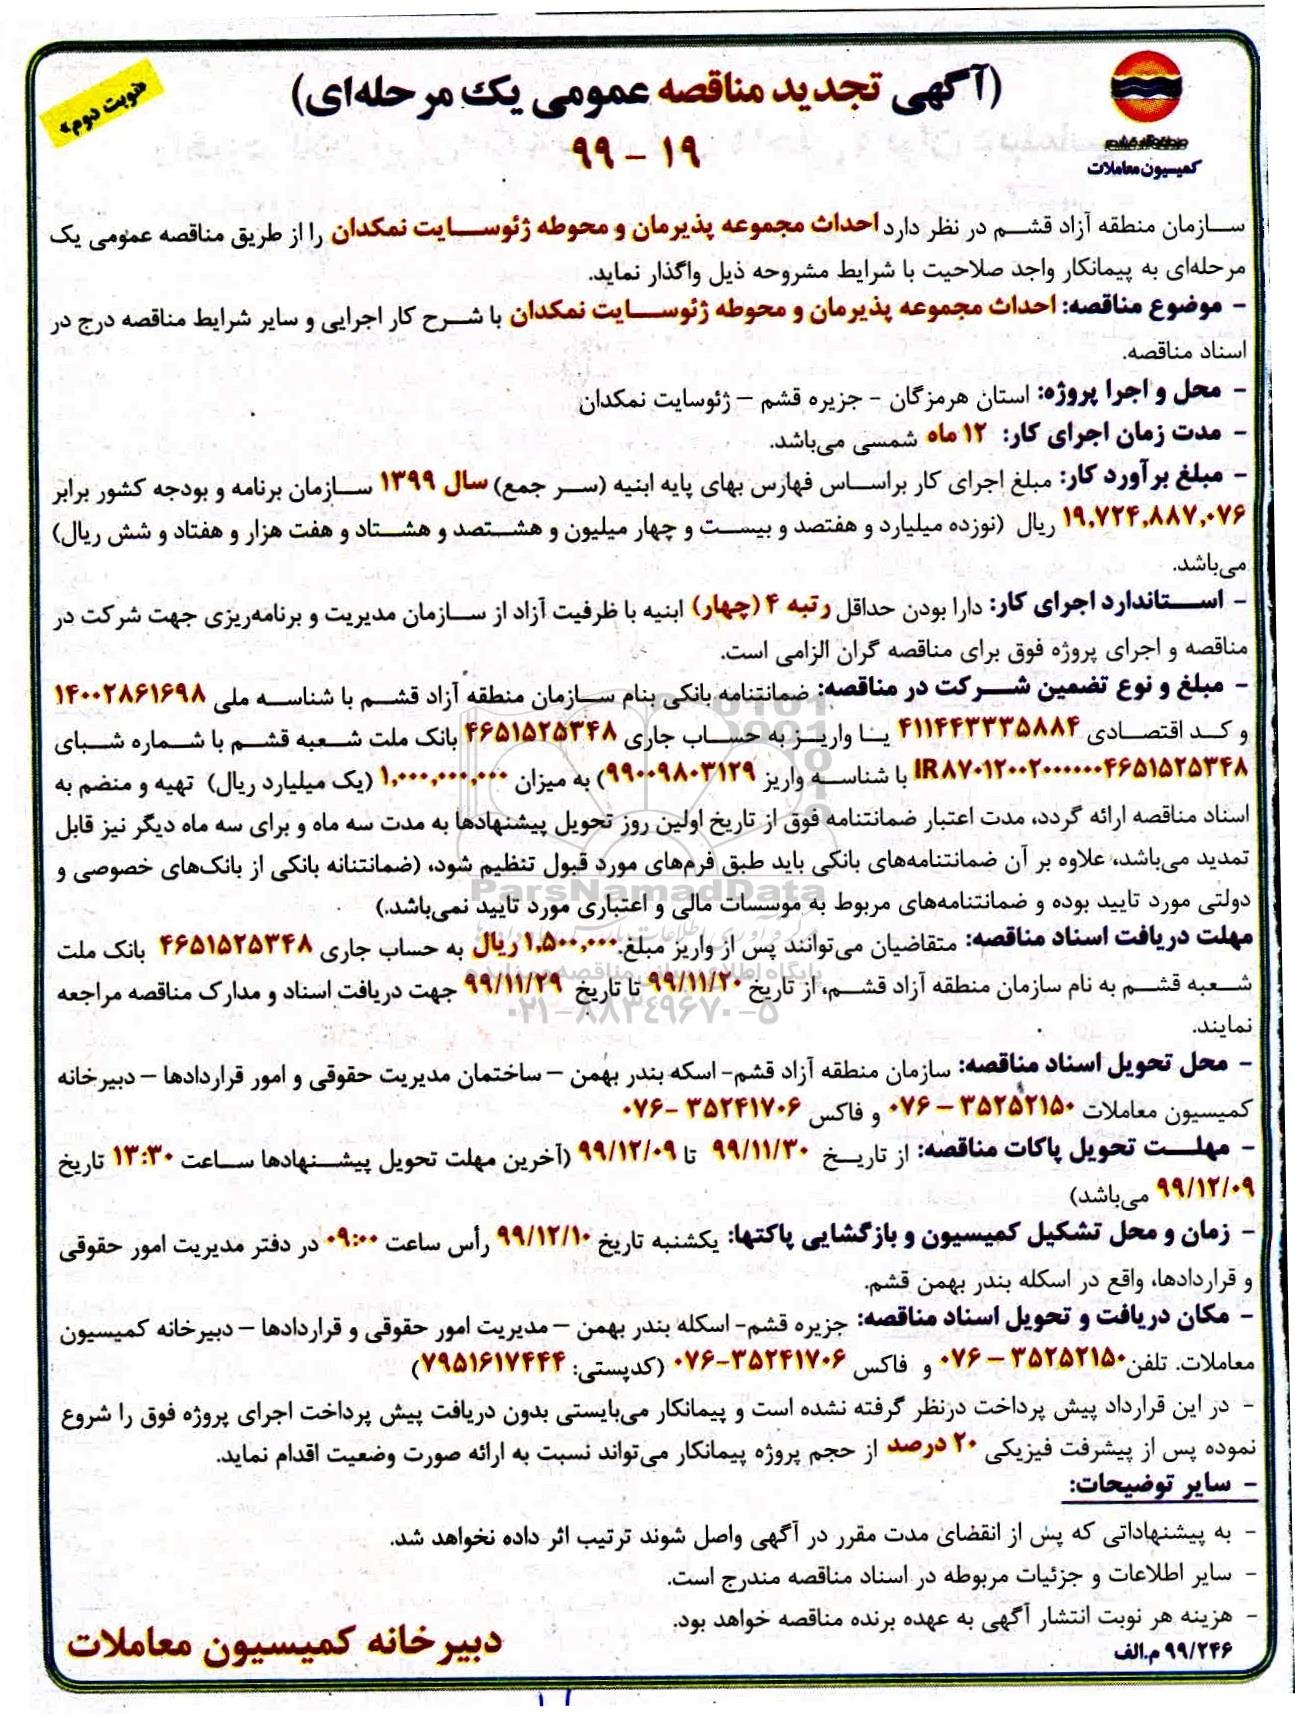 «نوبت دوم»
(آگهی تجدید مناقصه عمومی یک مرحله‌ای)
۱۹ - ۹۹
کمیسیون معاملات
سازمان منطقه آزاد قشم در نظر دارد احداث مجموعه پذیرمان و محوطه ژئوسایت نمکدان را از طریق مناقصه عمومی یک
مرحله‌ای به پیمانکار واجد صلاحیت با شرایط مشروحه ذیل واگذار نماید.
- موضوع مناقصه: احداث مجموعه پذیرمان و محوطه ژئوسایت نمکدان با شرح کار اجرایی و سایر شرایط مناقصه درج در
اسناد مناقصه.
- محل و اجرا پروژه: استان هرمزگان - جزیره قشم – ژئوسایت نمکدان
- مدت زمان اجرای کار: ۱۲ ماه شمسی می‌باشد.
- مبلغ برآورد کار: مبلغ اجرای کار براساس فهارس بهای پایه ابنیه (سر جمع) سال ۱۳۹۹ سازمان برنامه و بودجه کشور برابر
۱۹,۷۲۴,۸۸۷,۰۷۶ ریال (نوزده میلیارد و هفتصد و بیست و چهار میلیون و هشتصد و هشتاد و هفت هزار و هفتاد و شش ریال)
می‌باشد.
- استاندارد اجرای کار: دارا بودن حداقل رتبه ۴ (چهار) ابنیه با ظرفیت آزاد از سازمان مدیریت و برنامه‌ریزی جهت شرکت در
مناقصه و اجرای پروژه فوق برای مناقصه گران الزامی است.
- مبلغ و نوع تضمین شرکت در مناقصه: ضمانتنامه بانکی بنام سازمان منطقه آزاد قشم با شناسه ملی ۱۴۰۰۲۸۶۱۶۹۸
و کد اقتصادی ۴۱۱۴۴۳۳۳۵۸۸۴ یا واریز به حساب جاری ۴۶۵۱۵۲۵۳۴۸ بانک ملت شعبه قشم با شماره شبای
IR۸۷۰۱۲۰۰۲۰۰۰۰۰۰۴۶۵۱۵۲۵۳۴۸ با شناسه واریز ۹۹۰۰۹۸۰۳۱۲۹) به میزان ۱,۰۰۰,۰۰۰,۰۰۰ (یک میلیارد ریال) تهیه و منضم به
اسناد مناقصه ارائه گردد، مدت اعتبار ضمانتنامه فوق از تاریخ اولین روز تحویل پیشنهادها به مدت سه ماه و برای سه ماه دیگر نیز قابل
تمدید می‌باشد، علاوه بر آن ضمانتنامه‌های بانکی باید طبق فرم‌های مورد قبول تنظیم شود، (ضمانتنانه بانکی از بانک‌های خصوصی و
دولتی مورد تایید بوده و ضمانتنامه‌های مربوط به موسسات مالی و اعتباری مورد تایید نمی‌باشد.)
ParsNamadData
مهلت دریافت اسناد مناقصه: متقاضیان می‌توانند پس از واریز مبلغ ۱,۵۰۰,۰۰۰ ریال به حساب جاری ۴۶۵۱۵۲۵۳۴۸ بانک ملت
پایگاه اطلاع رسانی مناقصه و مزایده
شعبه قشم به نام سازمان منطقه آزاد قشم، از تاریخ ۹۹/۱۱/۲۰ تا تاریخ ۹۹/۱۱/۲۹ جهت دریافت اسناد و مدارک مناقصه مراجعه
۰۲۱-۸۸۳۴۹۶۷۰-۵
نمایند.
- محل تحویل اسناد مناقصه: سازمان منطقه آزاد قشم- اسکه بندر بهمن – ساختمان مدیریت حقوقی و امور قراردادها – دبیرخانه
کمیسیون معاملات ۳۵۲۵۲۱۵۰ – ۰۷۶ و فاکس ۳۵۲۴۱۷۰۶ -۰۷۶
- مهلت تحویل پاکات مناقصه: از تاریخ ۹۹/۱۱/۳۰ تا ۹۹/۱۲/۰۹ (آخرین مهلت تحویل پیشنهادها ساعت ۱۳:۳۰ تاریخ
۹۹/۱۲/۰۹ می‌باشد)
- زمان و محل تشکیل کمیسیون و بازگشایی پاکتها: یکشنبه تاریخ ۹۹/۱۲/۱۰ رأس ساعت ۰۹:۰۰ در دفتر مدیریت امور حقوقی
و قراردادها، واقع در اسکله بندر بهمن قشم.
- مکان دریافت و تحویل اسناد مناقصه: جزیره قشم- اسکله بندر بهمن – مدیریت امور حقوقی و قراردادها – دبیرخانه کمیسیون
معاملات. تلفن ۳۵۲۵۲۱۵۰ – ۰۷۶ و فاکس ۳۵۲۴۱۷۰۶-۰۷۶ (کدپستی: ۷۹۵۱۶۱۷۴۴۴)
- در این قرارداد پیش پرداخت درنظر گرفته نشده است و پیمانکار می‌بایستی بدون دریافت پیش پرداخت اجرای پروژه فوق را شروع
نموده پس از پیشرفت فیزیکی ۲۰ درصد از حجم پروژه پیمانکار می‌تواند نسبت به ارائه صورت وضعیت اقدام نماید.
- سایر توضیحات:
- به پیشنهاداتی که پس از انقضای مدت مقرر در آگهی واصل شوند ترتیب اثر داده نخواهد شد.
- سایر اطلاعات و جزئیات مربوطه در اسناد مناقصه مندرج است.
- هزینه هر نوبت انتشار آگهی به عهده برنده مناقصه خواهد بود.
۹۹/۲۴۶ م.الف
دبیرخانه کمیسیون معاملات